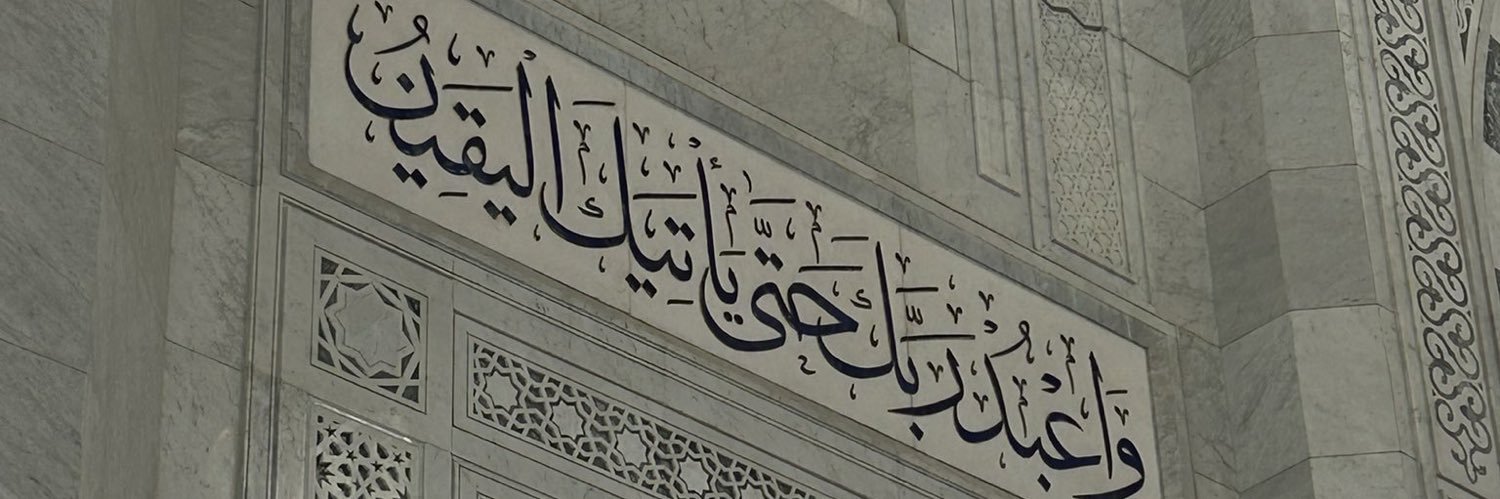 وَاعْبُدْ رَبَّكَ حَتَّىٰ يَأْتِيَكَ الْيَقِينُ